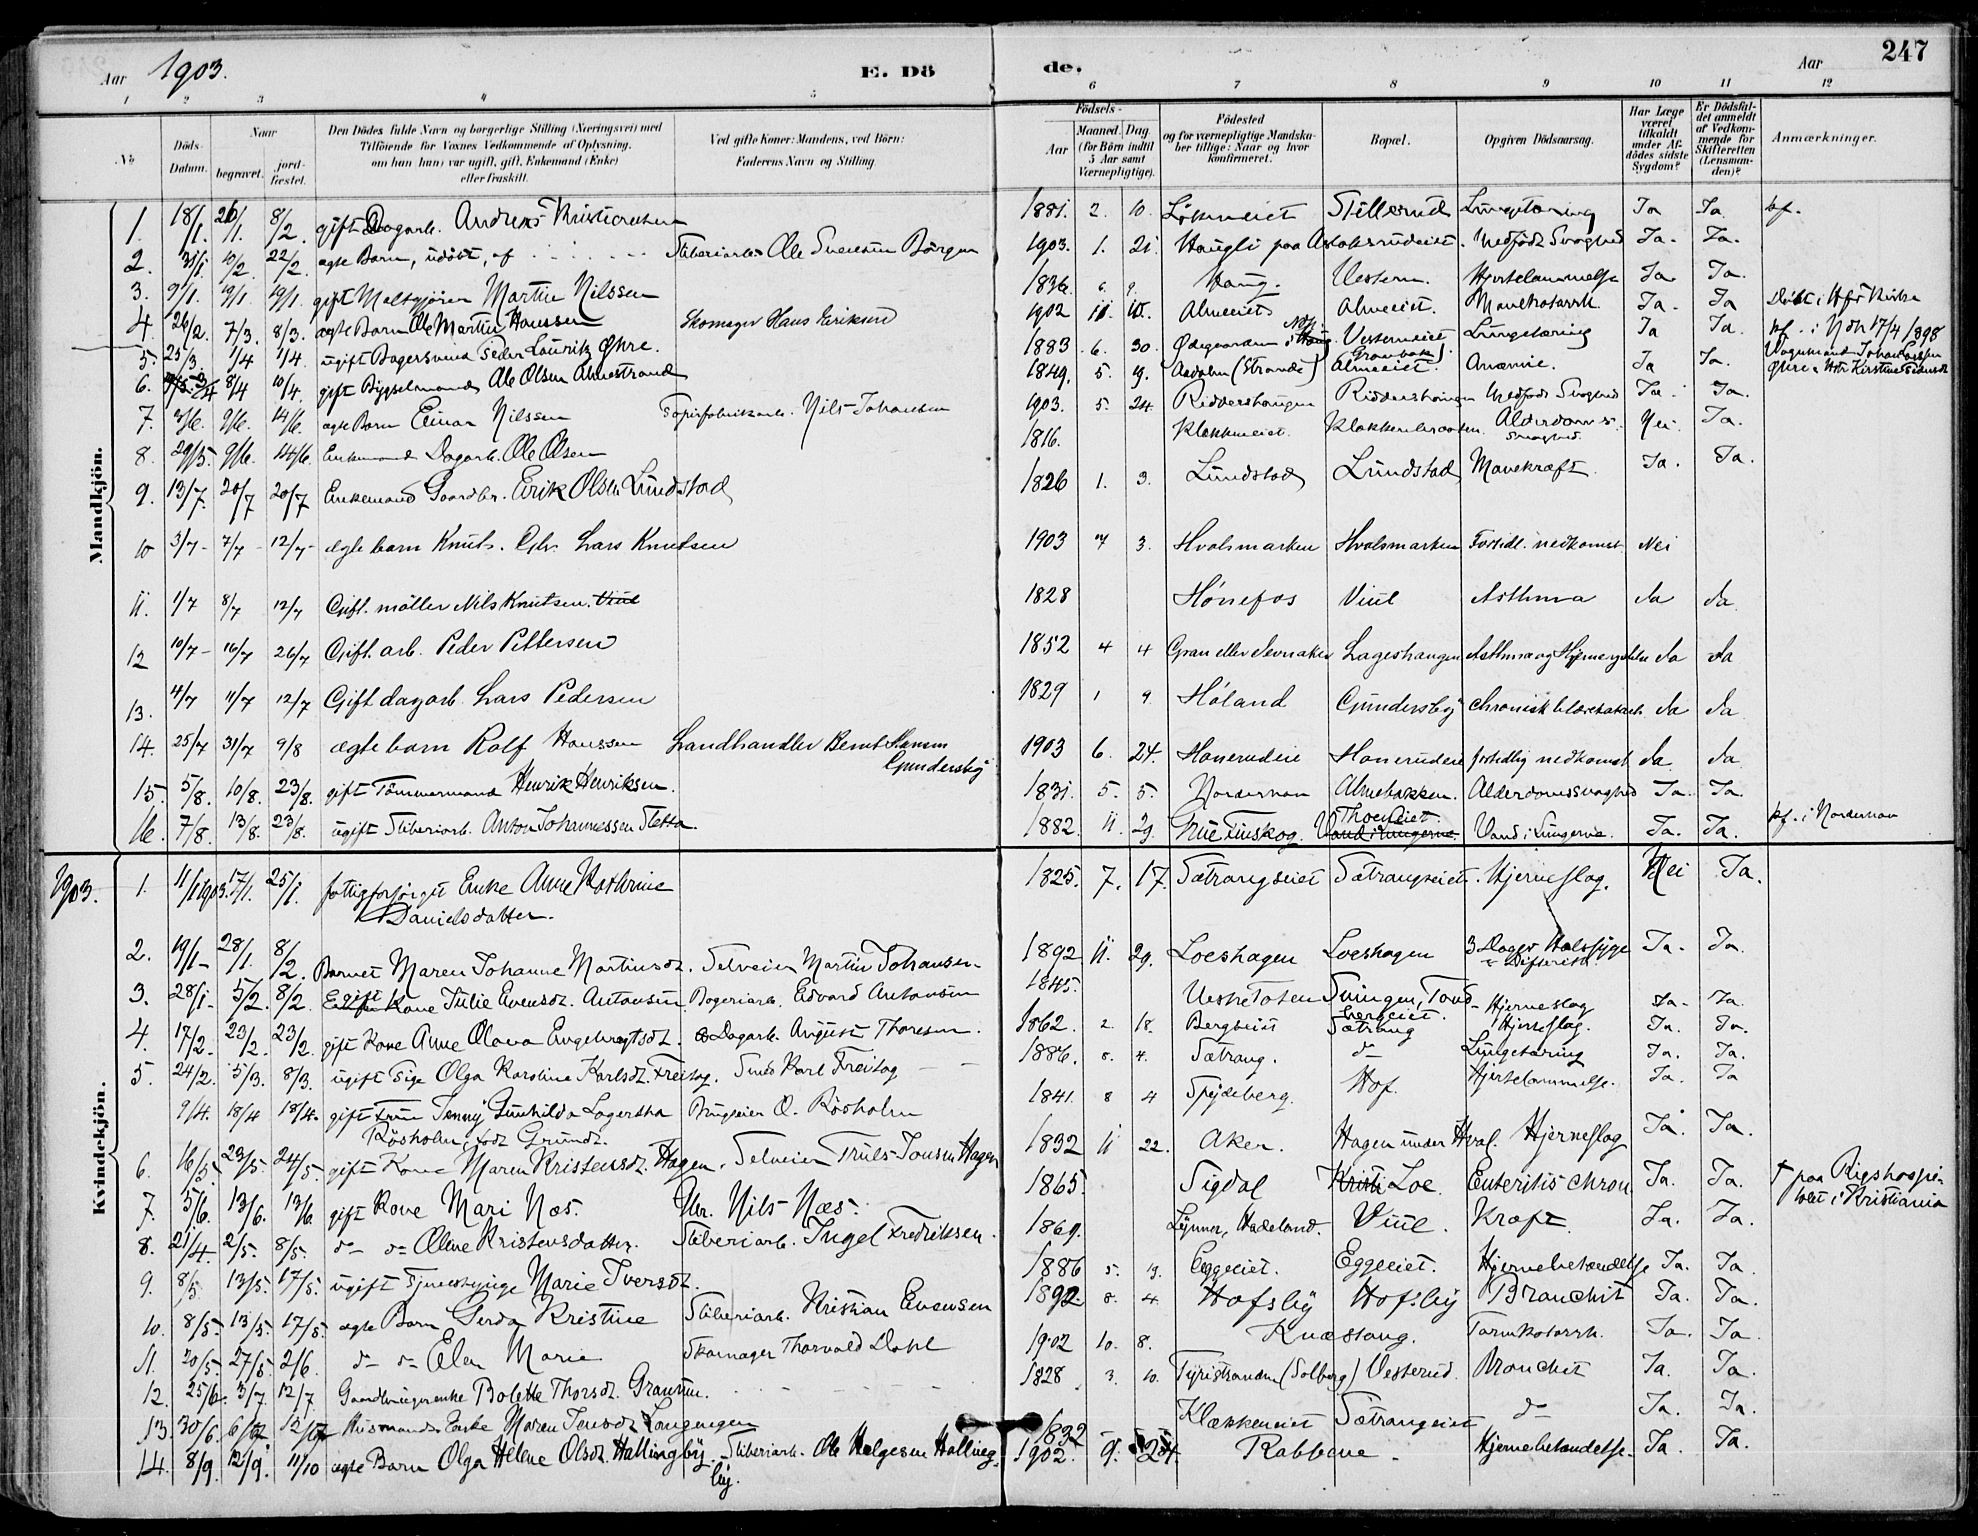 247
Aar 1903. E. Dö de. Aar
1 2 3 4 5 6 7 8 9 10 11 12
No
Döds-Datum.
Naar begravet. jordfæstet.
Den Dödes fulde Navn og borgerlige Stilling (Næringsvei) med Tilföiende for Voxnes Vedkommende af Oplysning, om han (hun) var ugift, gift, Enkemand (Enke) eller fraskilt.
Ved gifte Koner: Mandens, ved Börn: Faderens Navn og Stilling.
Födsels- Aar Maaned. Dag. (for Börn indtil 5 Aar samt Værnepligtige).
Födested og for værnepligtige Mandskaber tillige: Naar og hvor konfirmeret.
Bopæl.
Opgiven Dödsaarsag.
Har Læge været tilkaldt under Afdödes sidste Sygdom?
Er Dödsfaldet anmeldt af Vedkommende for Skifteretten (Lensmanden)?
Anmærkninger.
Mandkjön.
1. 18/1. 26/1. 8/2. gift Dagarb. Andreas Kristiansen 1881. 2. 10. Lökeneiet Sillerud Lungetæring Ja Ja. kf.
2. 31/1. 10/2. 22/2. ægte Barn, udöbt, af Sliberiarb. Ole Svensen Börgen 1903. 1. 21. Haugli paa Aslaksrudeiet. Medfödt Svaghed Ja. Ja.
3. 9/1. 19/1. 19/1. gift Maltgjörer Martin Nilssen 1836. 6. 9. Haug. Vestern. Hjertelammelse Ja Ja.
4. 26/2. 7/3. 8/3. ægte Barn Ole Martin Hanssen Skomager Hans Eriksen 1902 11. 10. Almeeiet Almeeiet. Mavekatarrh. Ja. Ja Döbt i Hfs Kirke
5. 25/3 1/4 1/4. ugift Bagersvend Peder Lauritz Öhre. 1883 6. 30. Ödegaarden i Haug Vesterneiet Lungetæring Ja Ja. kf. i Ndh 17/4 1898
6. 3/4 8/4 10/4. gift Bygselmand Ole Olsen Almestrand 1849. 5. 9. Aasoln (Strande) Almeeiet. Anæmie. Ja Ja.
7. 3/6. 9/6. 14/6. ægte Barn Einar Nilssen Papirfabrikarb. Nils Johansen 1903. 5. 24. Riddershaugen Riddershaugen Medfödt Svaghed Ja. Ja.
8. 29/5. 9/6. 14/6. Enkemand Dagarb. Ole Olsen 1816. Klækkeneiet. Klækkenbraaten. Alderdoms-svaghed. Nei. Ja.
9. 13/7. 20/7 20/7 Enkemand Gaardbr. Erik Olsen Lundstad 1826 1. 3. Lundstad Lundstad Mavekræft. Ja. Ja.
10 3/7- 7/7- 12/7- ægte barn Knut. Gbr. Lars Knutsen 1903 7 3. Hvalsmarken Hvalsmarken Fortidl. nedkomst Nei
11. 1/7 8/7 12/7 Gift. möller Nils Knutsen. Viul 1828 Hönefos Viul Asthma Ja Ja.
12 10/7- 16/7 26/7 Gift. arb. Peder Pettersen 1852 4 4 Gran eller Jevnaker Lageshaugen Asthma og Hjernesydelse Ja Ja
13. 4/7 11/7 12/7 Gift dagarb. Lars Pedersen 1829 1 9 Höland Gundersby chronisk blærekatarrh Ja Ja
14. 25/7 31/7 9/8 ægte barn Rolf Hanssen Landhandler Bernt Hansen Gundersby 1903 6. 24. Honerudeie Honerudeie fortidlig nedkomst Ja Ja
15. 5/8. 10/8. 23/8. gift Tömmermand Henrik Henriksen. 1831. 5. 5. Norderhov Almebakken. Alderdomssvaghed Ja. Ja.
16. 7/8. 13/8. 23/8. ugift Sliberiarb. Anton Johannessen Sletta. 1882. 11. 29. Grue Finskog. Thoeneiet. Vand i Lungerne. Ja. Ja. kf. i Norderhov
Kvindekjön.
1903. 1. 11/1 1903. 17/1. 25/1. fattigforsörget Enke Anne Kathrine Danielsdatter. 1825. 7. 17. Sætrangseiet Sætrangseiet. Hjerneslag. Nei Ja.
2. 19/1- 28/1. 8/2. Barnet Maren Johanne Martinsdt. Selveier Martin Johansen. 1892 11. 29. Loeshagen Loeshagen 3 Dages Halssyge Difterit. Ja. Ja.
3. 28/1- 5/2. 8/2. gift Kone Julie Evensdt. Antonsen Bageriarb. Edvard Antonsen 1845. Vestre Toten Svingen, Tandbergeiet. Hjerneslag Ja. Ja.
4. 17/2. 23/2. 23/2. gift Kone Anne Olava Engebregtsdt. Dagarb. August Thoresen. 1862. 2. 18. Bergseiet Sætrang Hjerneslag. Ja. Ja.
5. 24/2. 5/3. 8/3. ugift Pige Olga Karoline Karlsdt. Freitag. Smed Karl Freitag 1886. 8. 4. Sætrang. do Lungetæring Ja. Ja.
9/4. 18/4 18/4. gift Frue Jenny Gunhilda Lagertha Rösholm, födt Grundt. Brugseier O. Rösholm 1841. 8 4 Spydeberg. Hof. Hjertelammelse. Ja. Ja
6. 16/5. 23/5. 24/5. gift Kone Maren Kristensdt. Hagen. Selveier Truls Jonsen Hagen 1832 11 22. Aker. Hagen under Hval. Hjerneslag Ja. Ja.
7. 5/6. 13/6. 13/6. gift Kone Mari Næs. Gbr. Nils Næs. 1865. Sigdal Loe. Enteritis chron. Ja. Ja. † paa Rigshospitalet i Kristiania
8. 21/4 2/5. 8/5. do do Oline Kristensdatter. Sliberiarb. Ingel Fredriksen. 1869. Lynner, Hadeland. Viul. Kræft. Ja. Ja.
9. 8/5 13/5. 17/5. ugift Tjenestpige Marie Iversdt. 1886 5. 19. Eggeeiet. Eggeeiet. Hjernebetændelse Ja. Ja.
10. 8/5. 13/5. 17/5. ægte Barn Gerda Kristine Sliberiarb. Kristian Evensen 1892 8. 4. Hofsby Hofsby Bronchit Ja. Ja.
11. 20/5. 27/5. 2/6. do do Elen Marie Skomager Thorvald Dahl 1902 10. 8. Knæstang. Tarmkatarrh. Ja. Ja.
12. 25/6. 3/7. 12/7. Gaardbrugerenke Bolette Thorsdt. Graven. 1828 3. 10. Tyristranden (Solberg) Vesterud. Bronchit Ja. Ja.
13. 30/6. 6/7 12/7 Husmands Enke Maren Jensdt. Langengen 1832 Klækkeneiet Sætrangeiet do Ja. Ja.
14. 8/9. 12/9. 11/10 ægte Barn Olga Helene Olsdt. Hallingby. Sliberiarb. Ole Helgesen Hallingby. 1902. 9. 24. Rabbene. Hjernebetændelse. Ja. Ja.